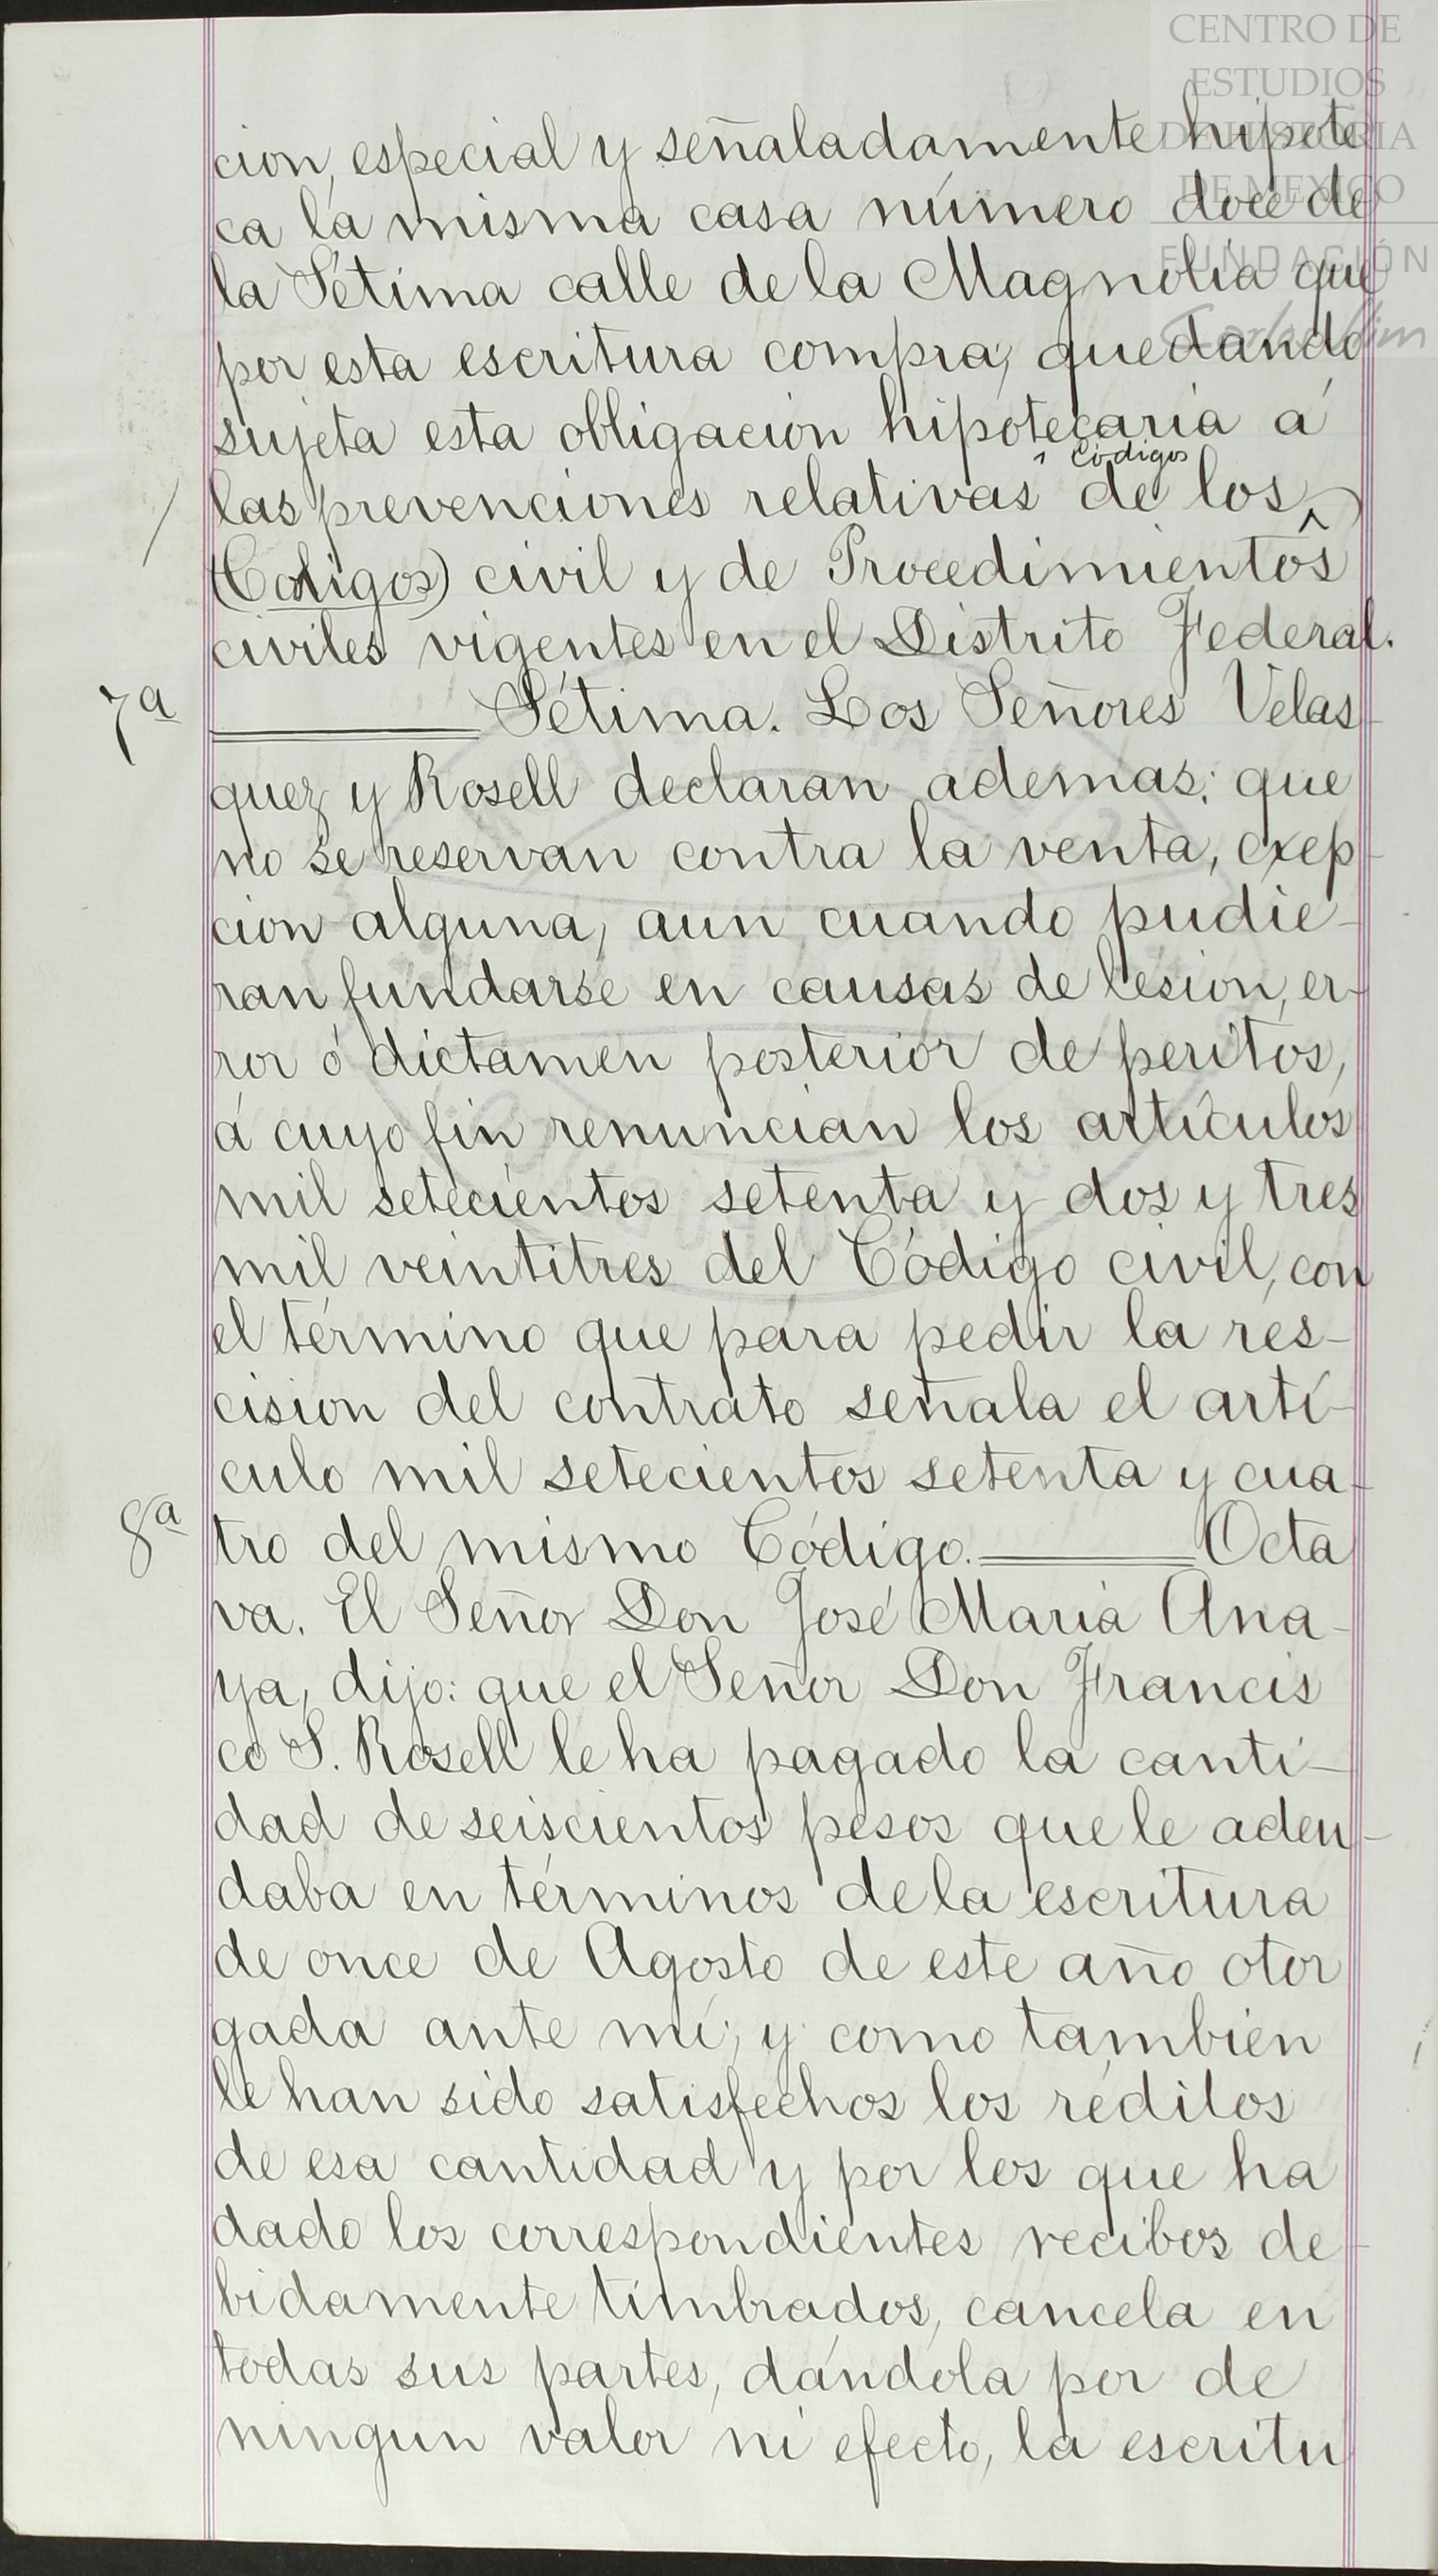 CENTRO DE
ESTUDIOS
DE HISTORIA
DE MEXICO
FUNDACIÓN
Carlos Slim
cion, especial y señaladamente hipote
ca la misma casa número doce de
la Sétima calle de la Magnolia que
por esta escritura compra; quedando
sujeta esta obligacion hipotecaria á
Códigos
las prevenciones relativas de los
(Codigos) civil y de Procedimientos
civiles vigentes en el Distrito Federal.
7a
Sétima. Los Señores Velas-
quez y Rosell declaran ademas: que
no se reservan contra la venta, exep-
cion alguna, aun cuando pudie-
ran fundarse en causas de lesion, er-
ror ó dictamen posterior de peritos,
á cuyo fin renuncian los artículos
mil setecientos setenta y dos y tres
mil veintitres del Código civil, con
el término que para pedir la res-
cision del contrato señala el artí-
culo mil setecientos setenta y cua-
8a
tro del mismo Código. Octa
va. El Señor Don José Maria Ana-
ya, dijo: que el Señor Don Francis
co S. Rosell le ha pagado la canti-
dad de seiscientos pesos que le adeu-
daba en términos de la escritura
de once de Agosto de este año otor
gada ante mí; y como tambien
le han sido satisfechos los réditos
de esa cantidad y por los que ha
dado los correspondientes recibos de-
bidamente timbrados, cancela en
todas sus partes, dándola por de
ningun valor ni efecto, la escritu